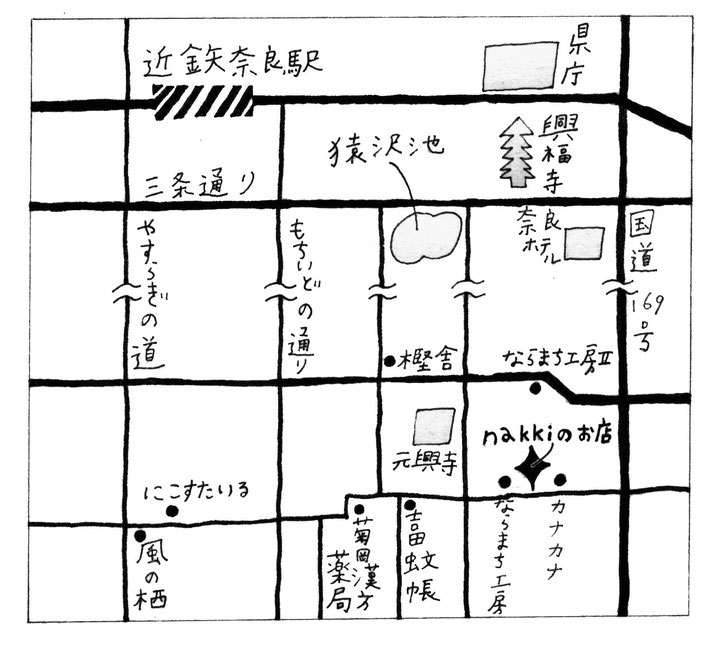 近鉄奈良駅
県庁
猿沢池
興福寺
三条通り
奈良
ホテル
国道
169号
やすらぎの道
もちいどの通り
樫舎
ならまち工房Ⅱ
nakkiのお店
元興寺
にこすたいる
風の栖
菊岡漢方
薬局
吉田蚊帳
ならまち工房
カナカナ